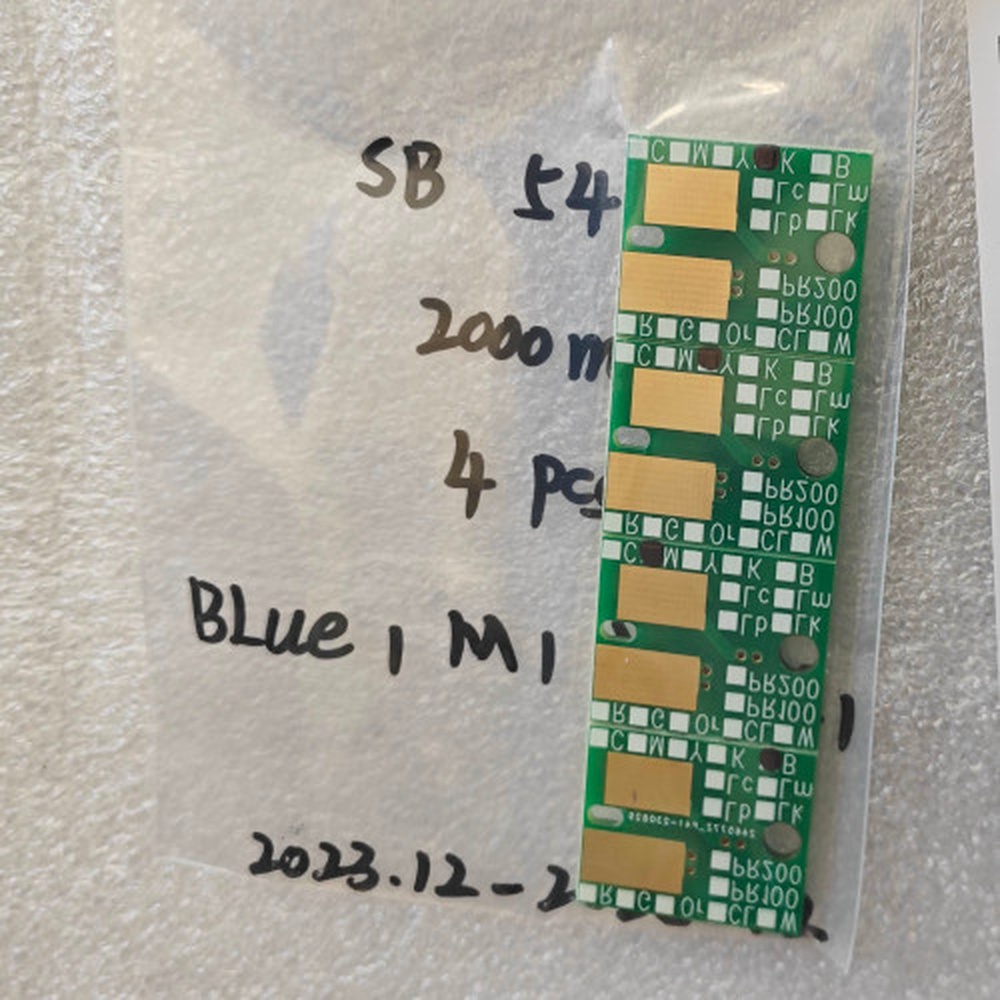 SB 54
2000 m
4 pcs
BLue 1 M 1
1
2023.12-2
C M Y K B
Lc Lm
Lb Lk
PR200
PR100
R G Or CL W
C M Y K B
Lc Lm
Lb Lk
PR200
PR100
R G Or CL W
C M Y K B
Lc Lm
Lb Lk
PR200
PR100
R G Or CL W
C M Y K B
Lc Lm
Lb Lk
PR200
PR100
R G Or CL W